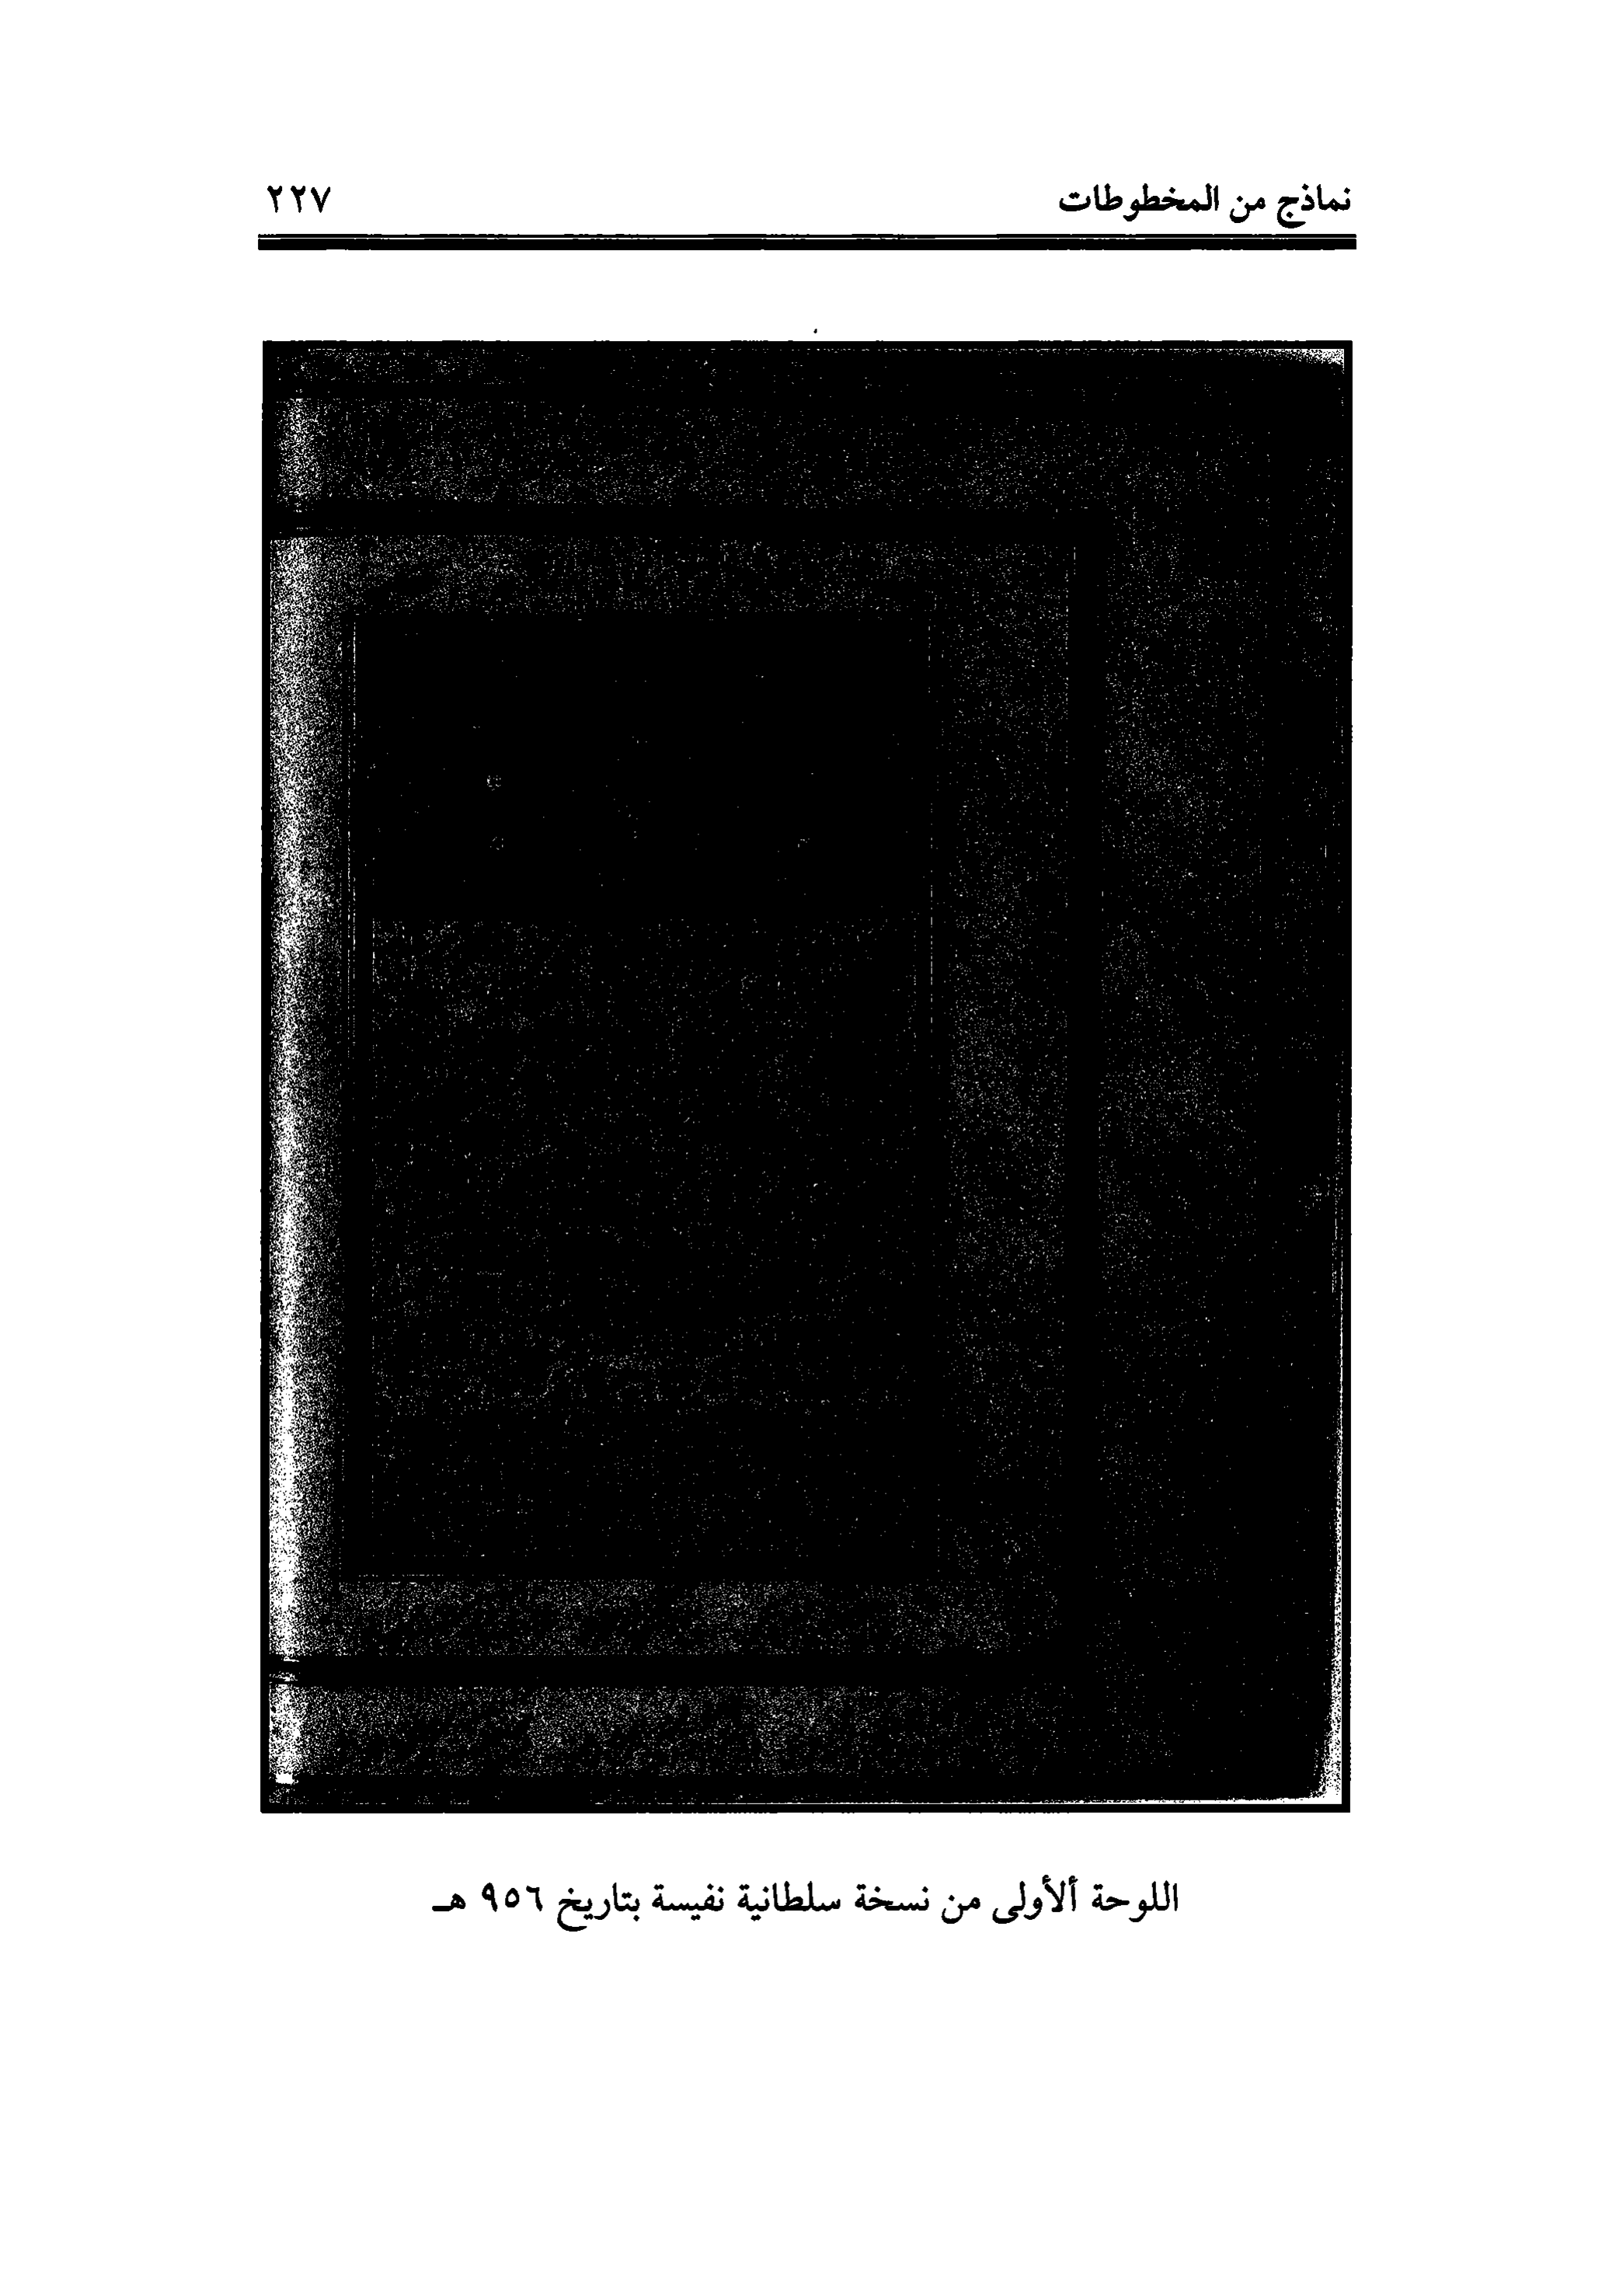 نماذج من المخطوطات ٢٢٧
اللوحة ألأولى من نسخة سلطانية نفيسة بتاريخ ٩٥٦ هـ